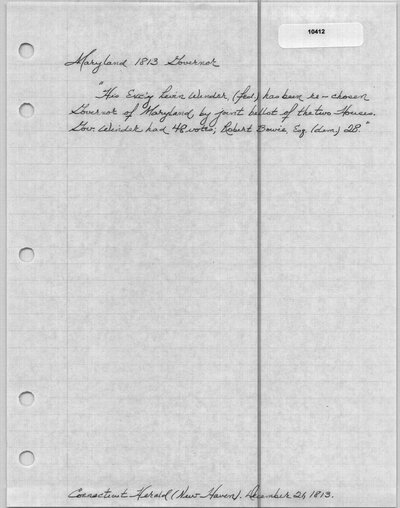 10412
Maryland 1813 Governor
"His Exc'y Levin Winder, (fed.) has been re-chosen
Governor of Maryland, by joint ballot of the two Houses.
Gov. Winder had 48 votes; Robert Bowie, Esq. (dem.) 28."
Connecticut Herald (New Haven). December 21, 1813.